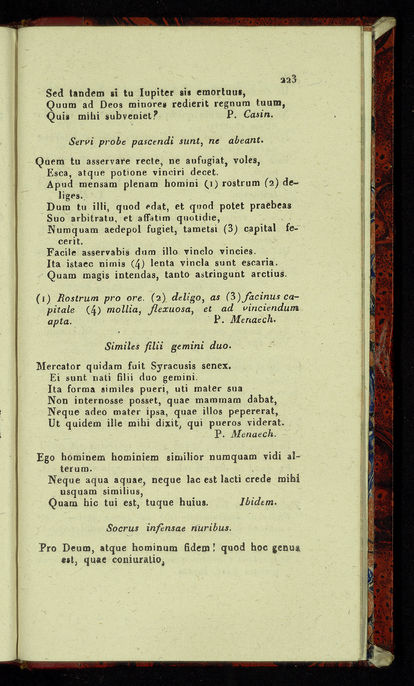 223
Sed tandem si tu Iupiter sis emortuus,
Quum ad Deos minores redierit regnum tuum,
Quis mihi subveniet? P. Casin.
Servi probe pascendi sunt, ne abeant.
Quem tu asservare recte, ne aufugiat, voles,
Esca, atque potione vinciri decet.
Apud mensam plenam homini (1) rostrum (2) de-
liges.
Dum tu illi, quod edat, et quod potet praebeas
Suo arbitratu, et affatim quotidie,
Numquam aedepol fugiet, tametsi (3) capital fe-
cerit.
Facile asservabis dum illo vinclo vincies.
Ita istaec nimis (4) lenta vincla sunt escaria.
Quam magis intendas, tanto astringunt arctius.
(1) Rostrum pro ore. (2) deligo, as (3) facinus ca-
pitale (4) mollia, flexuosa, et ad vinciendum
apta. P. Menaech.
Similes filii gemini duo.
Mercator quidam fuit Syracusis senex.
Ei sunt nati filii duo gemini.
Ita forma similes pueri, uti mater sua
Non internosse posset, quae mammam dabat,
Neque adeo mater ipsa, quae illos pepererat,
Ut quidem ille mihi dixit, qui pueros viderat.
P. Menaech.
Ego hominem hominiem similior numquam vidi al-
terum.
Neque aqua aquae, neque lac est lacti crede mihi
usquam similius,
Quam hic tui est, tuque huius. Ibidem.
Socrus infensae nuribus.
Pro Deum, atque hominum fidem! quod hoc genus
est, quae coniuratio,